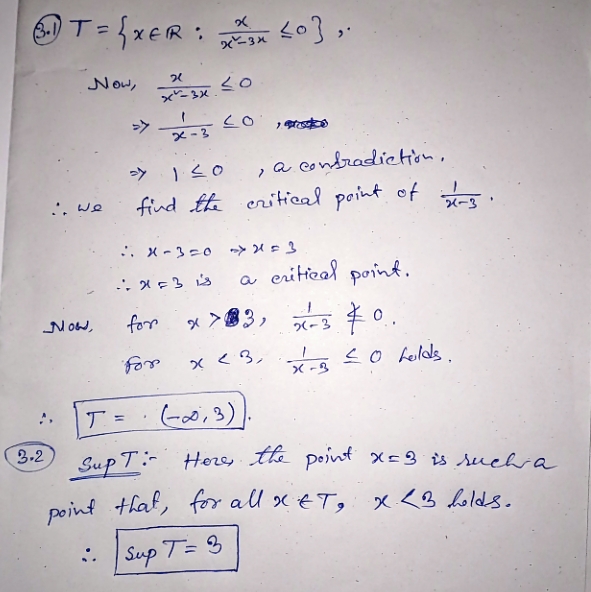 3.1) T = {x ∈ R : x/(x²-3x) ≤ 0},
Now, x/(x²-3x) ≤ 0
⇒ 1/(x-3) ≤ 0,
⇒ 1 ≤ 0, a contradiction.
∴ we find the critical point of 1/(x-3).
∴ x-3=0 ⇒ x=3
∴ x=3 is a critical point.
Now, for x > 3, 1/(x-3) ≰ 0.
for x < 3, 1/(x-3) ≤ 0 holds.
∴ T = (-∞, 3).
3.2 Sup T:- Here, the point x=3 is such a
point that, for all x ∈ T, x < 3 holds.
∴ Sup T = 3